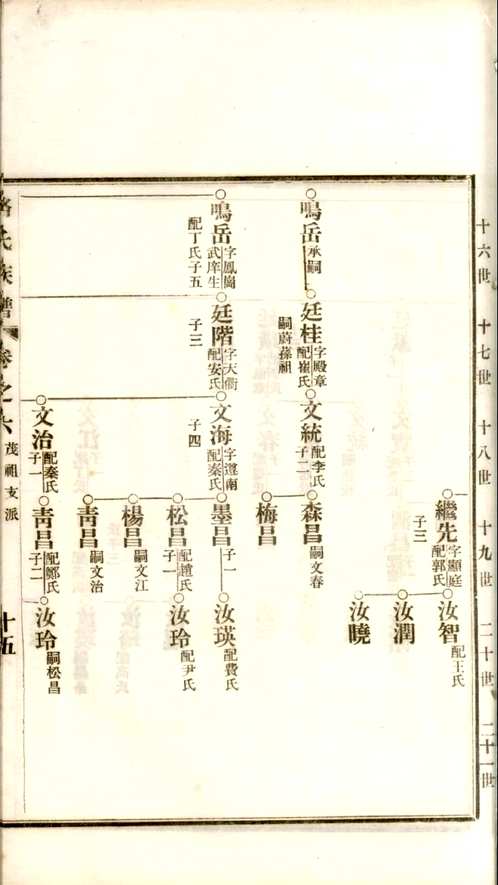 十六世
十七世
十八世
十九世
二十世
二十一世
繼先
字顯庭
配郭氏
子三
汝智
配王氏
汝潤
汝曉
鳴岳
承嗣
廷桂
字殿章
配崔氏
嗣蔚蓀祖
文統
配李氏
子二
森昌
嗣文春
梅昌
鳴岳
字鳳崗
武庠生
配丁氏子五
廷階
字天衢
配安氏
子三
文海
字達南
配秦氏
子四
墨昌
子一
汝瑛
配費氏
松昌
配鍾氏
子一
汝玲
配尹氏
楊昌
嗣文江
青昌
嗣文治
文治
配秦氏
子一
青昌
配鄭氏
子二
汝玲
嗣松昌
氏族譜
卷之六
茂祖支派
十五